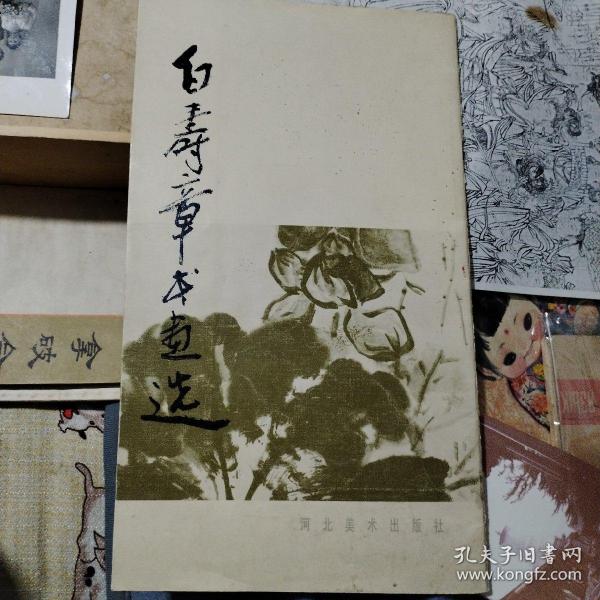 白寿章书画选
河北美术出版社
孔夫子旧书网
www.kongfz.com